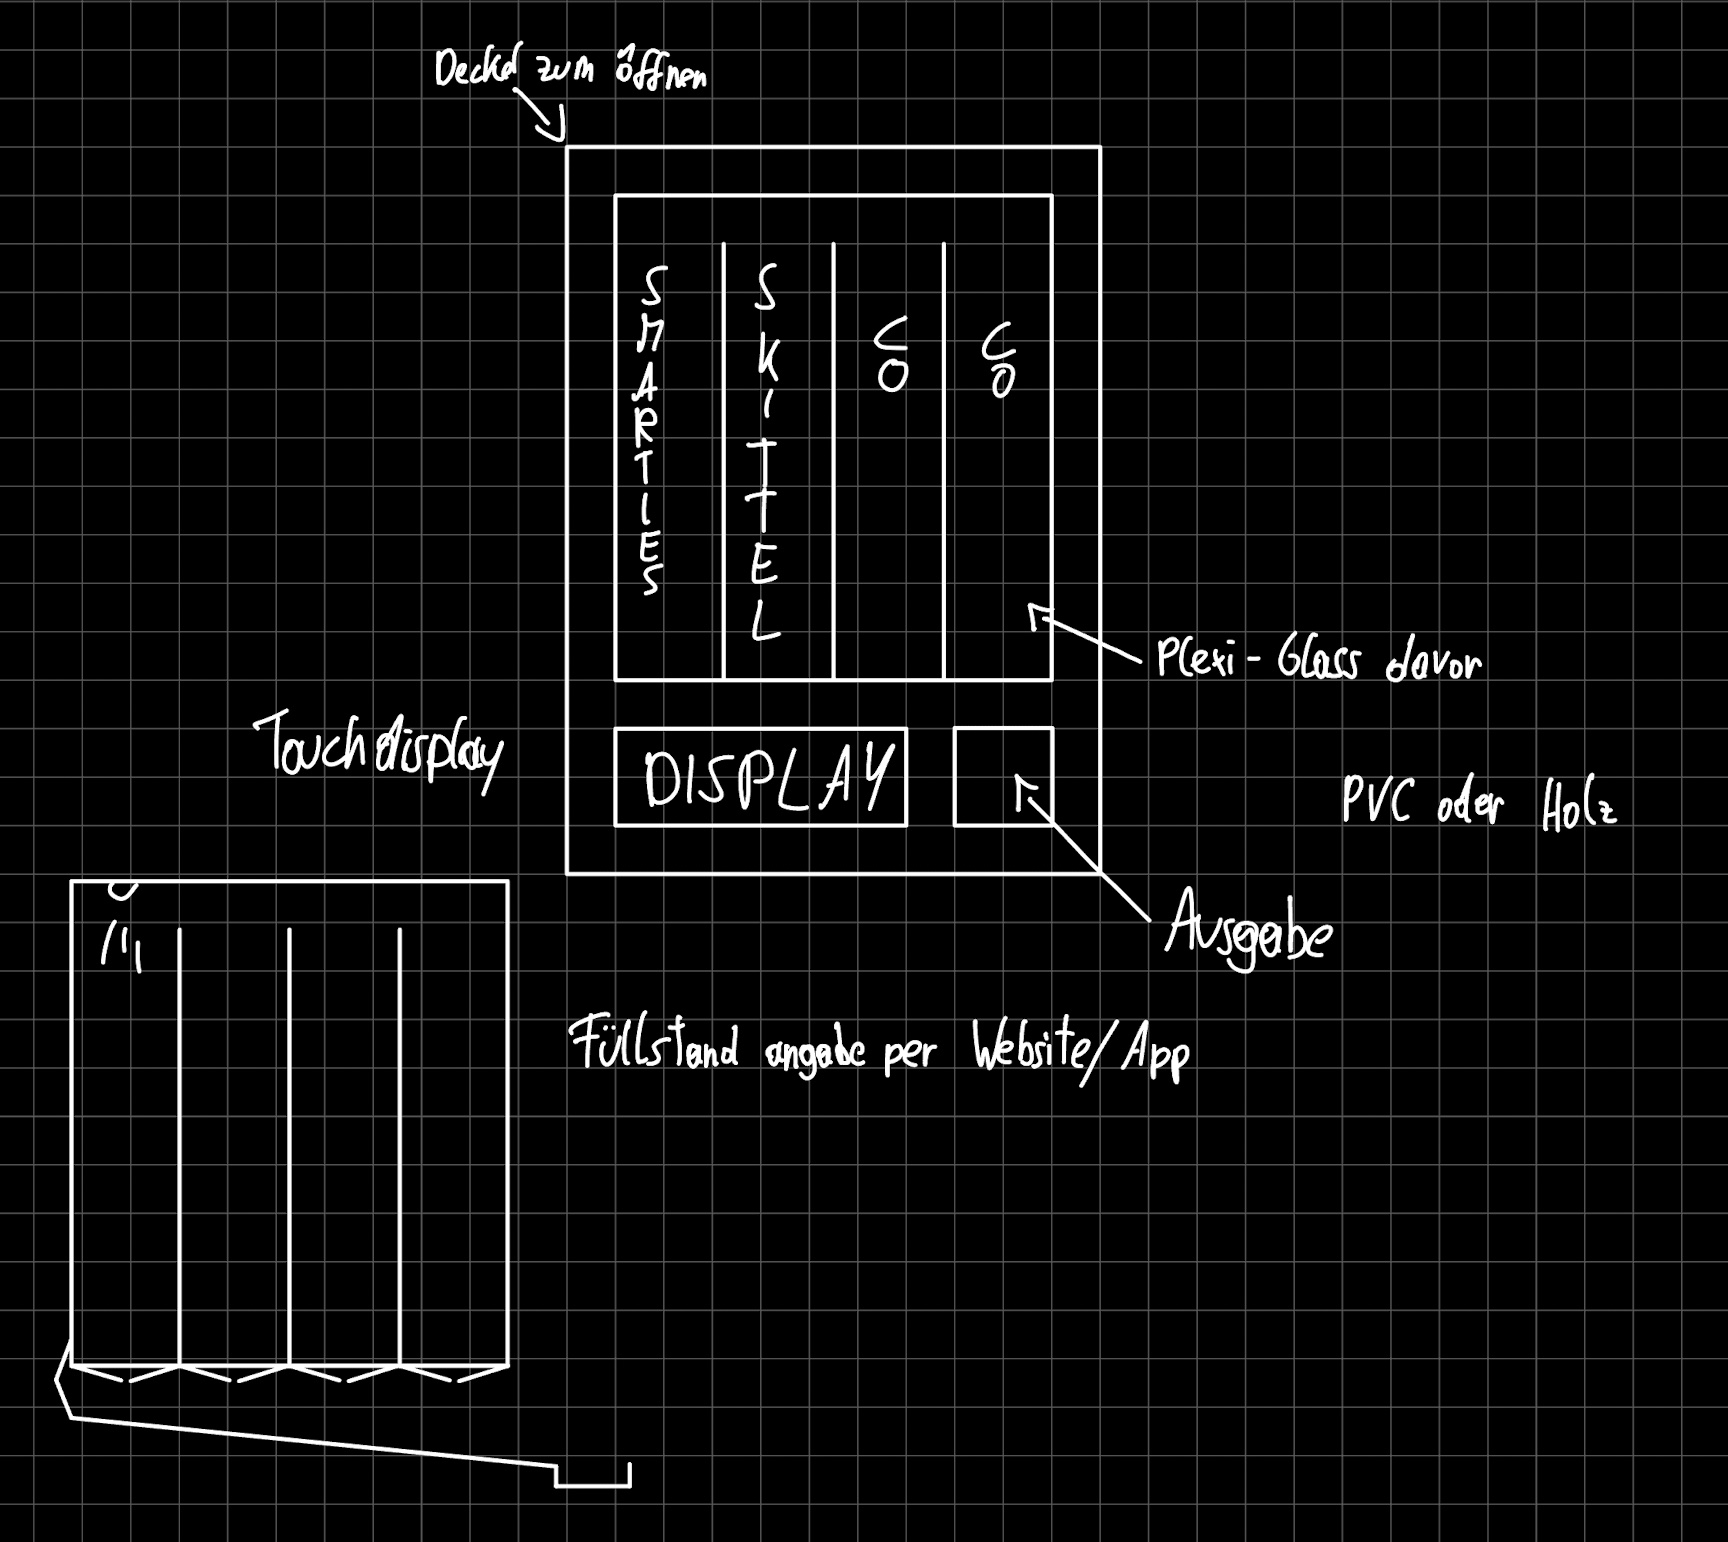 Deckel zum öffnen
SMARTIES
SKITTEL
CO
CO
Plexi-Glass davor
Touchdisplay
DISPLAY
PVC oder Holz
Ausgabe
Füllstand angabe per Website/App